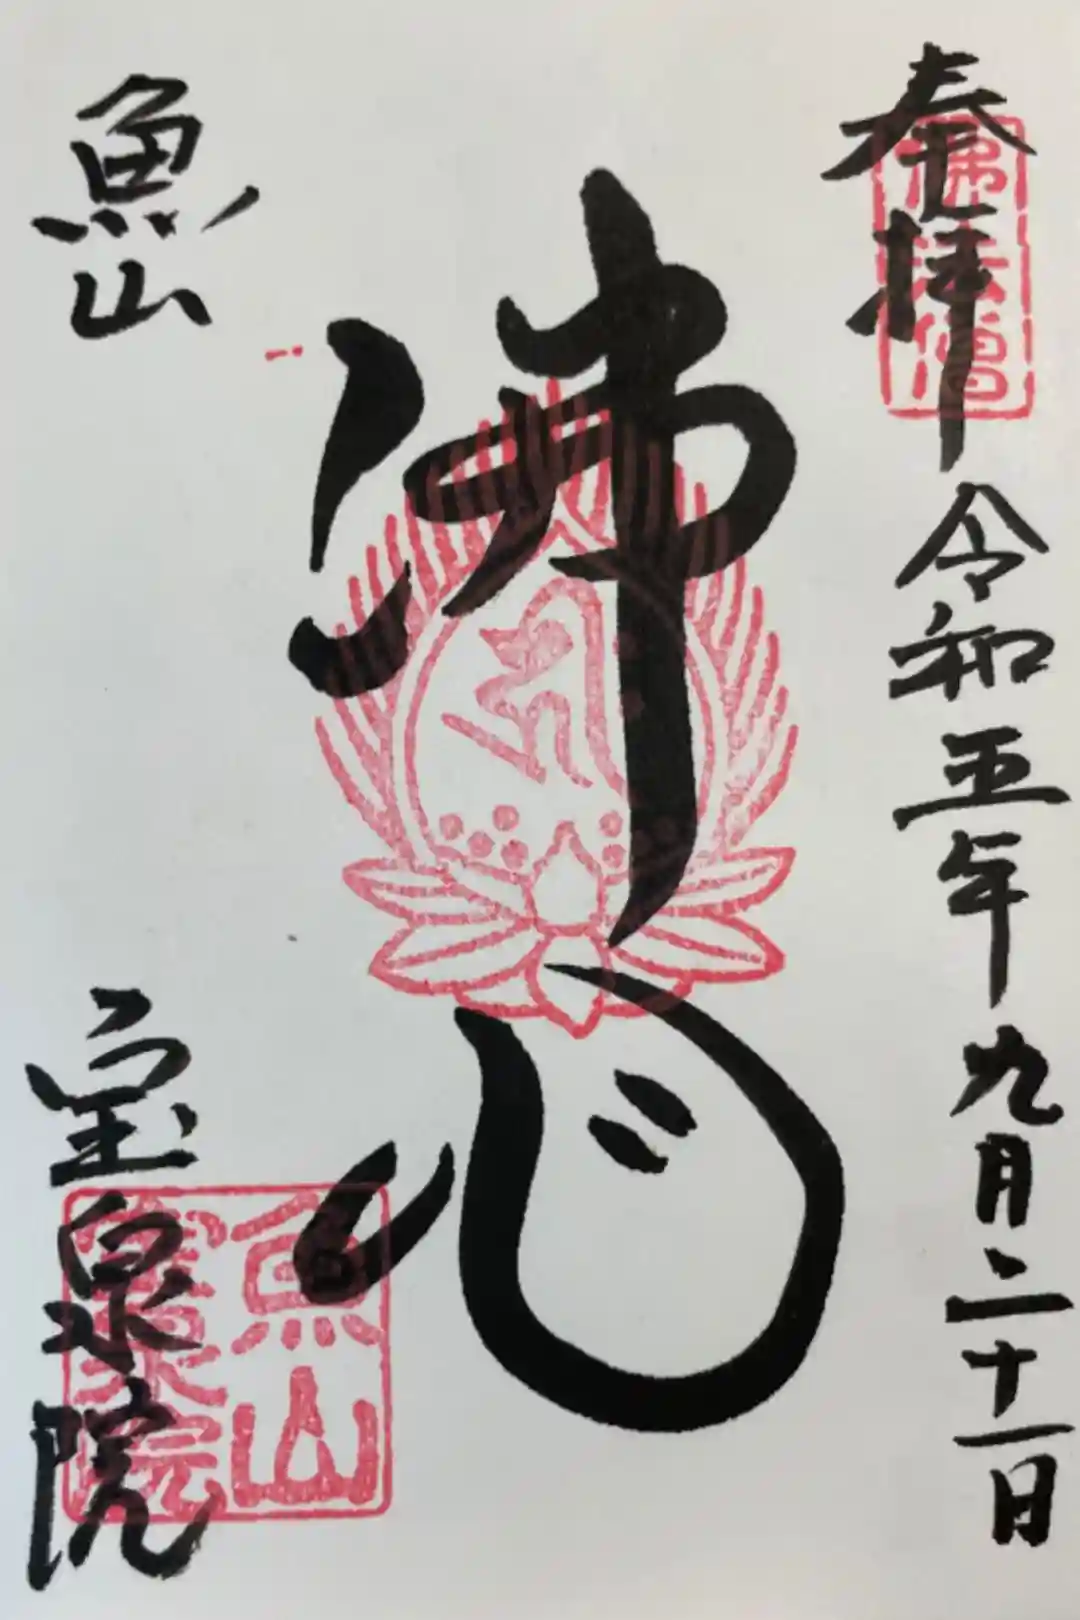 奉拝 令和五年九月二十一日
佛法僧
佛心
魚山
宝泉院
魚山
寳泉院